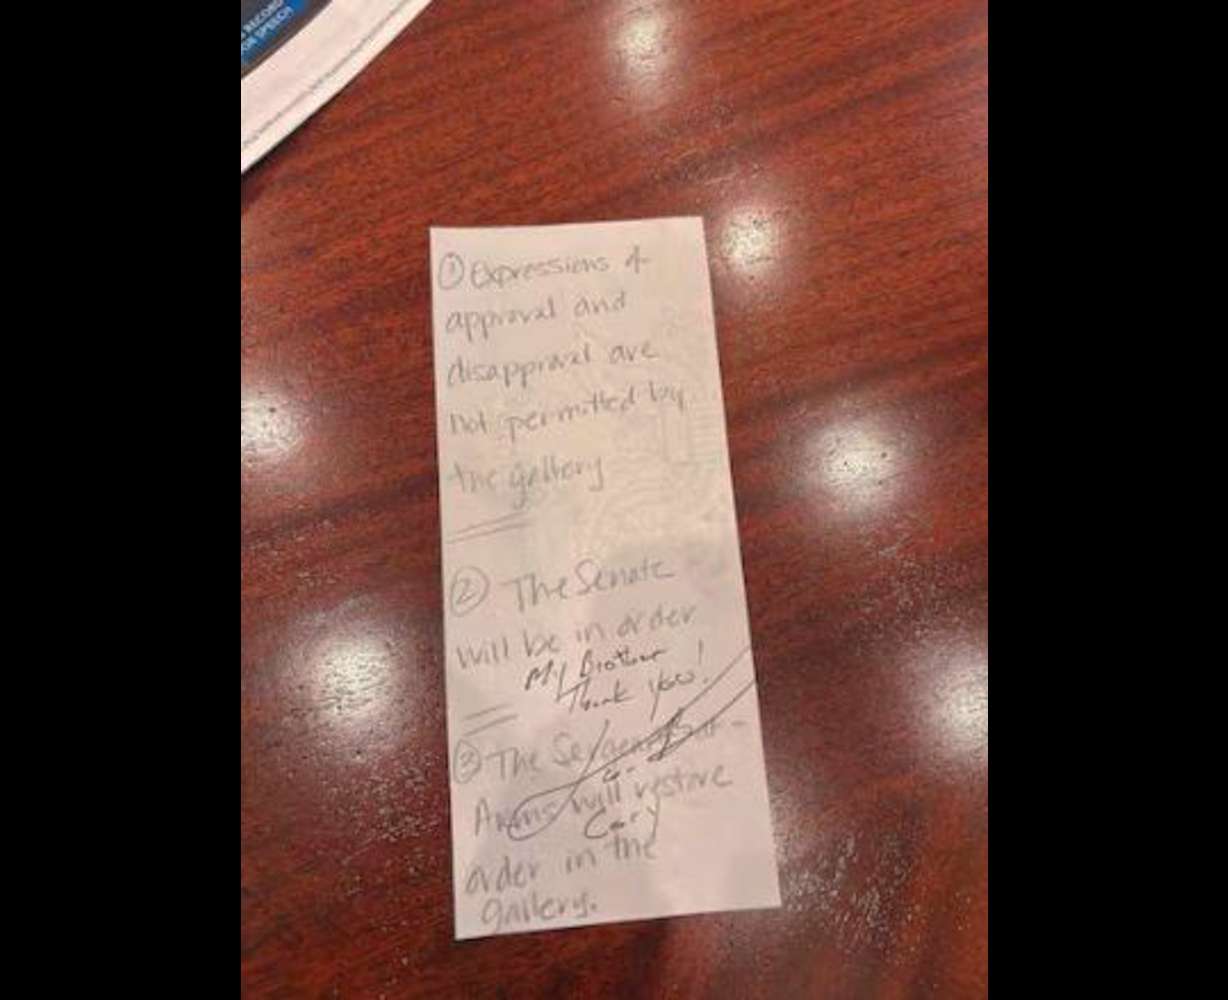 RECORD
FOR SPEECH
① Expressions of
approval and
disapproval are
not permitted by
the gallery
② The Senate
will be in order
My Brother
Thank you!
③ The Sergeant-at-
Arms will restore
Cory
order in the
gallery.